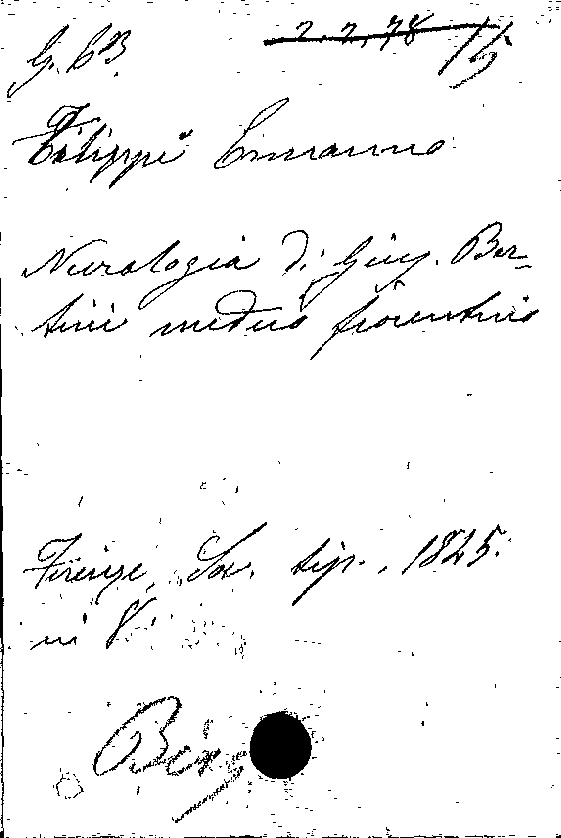 2.2.78
15
Filippi Ermanno
Necrologia di Giu. Ber-
tini medico fiorentino
Firenze, Soc. tip., 1825.
in 8°.